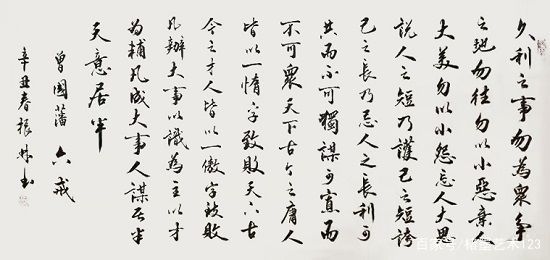 久利之事勿為眾爭
之地勿往勿以小惡棄人
大美勿以小怨忘人大恩
說人之短乃護己之短誇
己之長乃忌人之長利可
共而不可獨謀可寡而
不可眾天下古今之庸人
皆以一惰字致敗天下古
今之才人皆以一傲字致敗
凡辦大事以識為主以才
為輔凡成大事人謀居半
天意居半
曾國藩 六戒
辛丑春振林书
百家号/墨艺术123